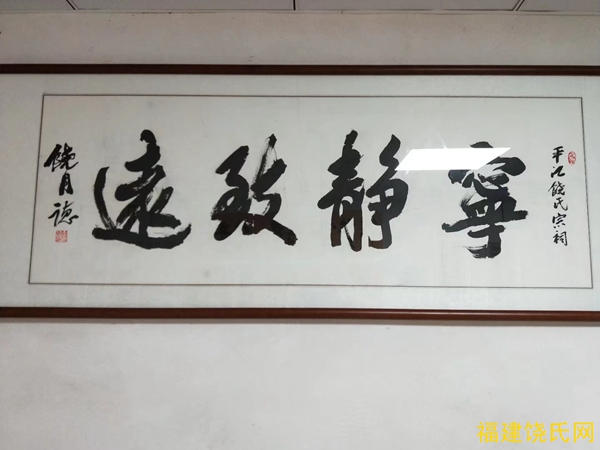 平江饒氏宗祠
寧靜致遠
饒月德
福建饶氏网